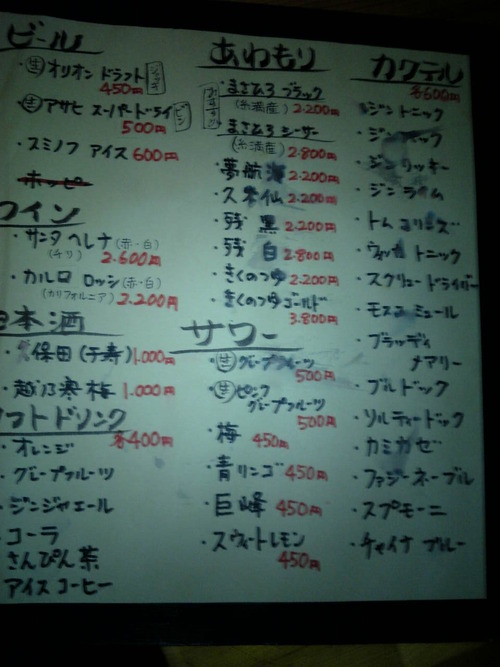 ビール
・生オリオン ドラフト ジョッキ
450円
・生アサヒ スーパードライ ビン
500円
・スミノフ アイス 600円
ホッピー
ワイン
・サンタ ヘレナ(赤・白)
(チリ) 2.600円
・カルロ ロッシ(赤・白)
(カリフォルニア) 2.200円
日本酒
・久保田(千寿)1.000円
・越乃寒梅 1.000円
ソフトドリンク
各400円
・オレンジ
・グレープフルーツ
・ジンジャエール
・コーラ
さんぴん茶
アイスコーヒー
あわもり
おすすめ
・まさひろ ブラック
(糸満産) 2.200円
・まさひろ シーザー
(糸満産) 2.800円
・夢航海 2.200円
・久米仙 2.200円
・残 黒 2.200円
・残 白 2.800円
・きくのつゆ 2.200円
・きくのつゆゴールド
3.800円
サワー
・生グレープフルーツ
500円
・生ピンク
グレープフルツ
500円
・梅 450円
・青リンゴ 450円
・巨峰 450円
・スウィートレモン
450円
カクテル
各600円
・ジン トニック
・ジン
・ジン リッキー
・ジン ライム
・トム コリンズ
・ウォッカ トニック
・スクリュー ドライバー
・モスコ ミュール
・ブラッディ
メアリー
・ブルドック
・ソルティードック
・カミカゼ
・ファジーネーブル
・スプモーニ
・チャイナ ブルー